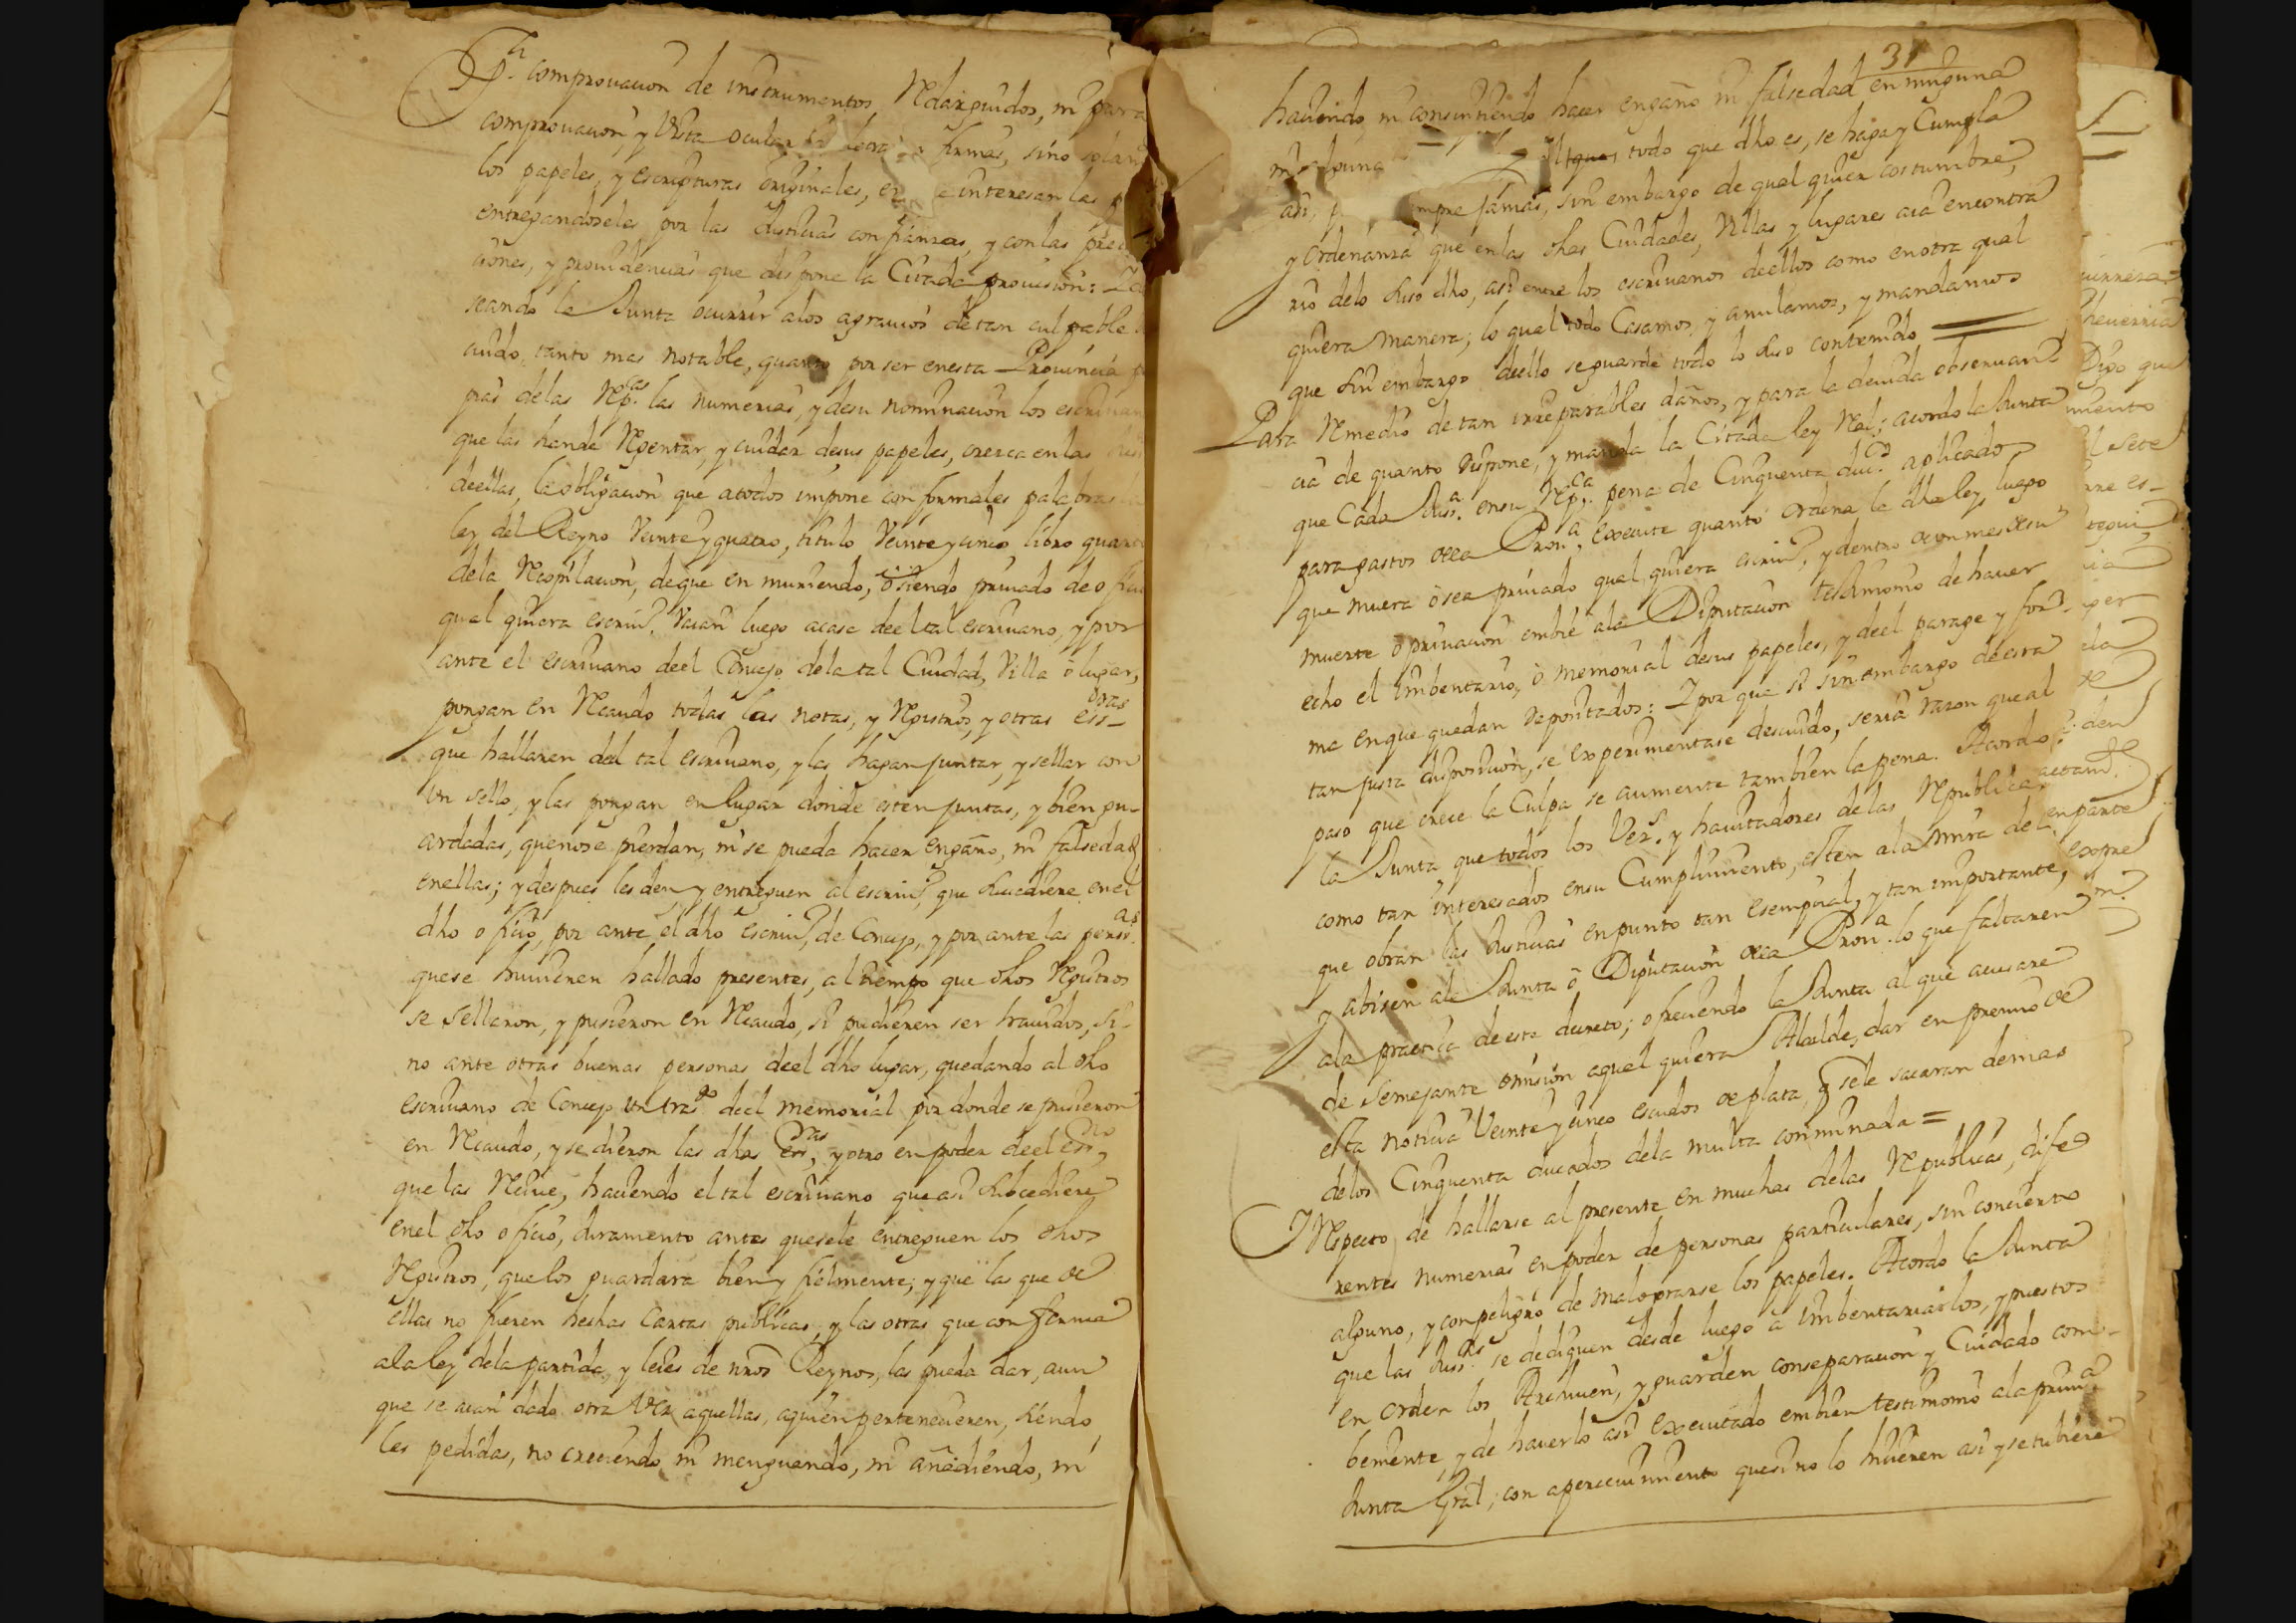 Pr. comprouacion de instrumentos Redarguidos, ni para
comprouacion, y Vista ocular de letra firmas, sino solam
los papeles, y escripturas originales, en interesan las p
entregandoseles por las Justicias con fianzas, y con las prec
ciones, y prouidencias que dispone la Citada prouision: Y de
seando la Junta ocurrir alos agrauios de tan culpable
cuido, tanto mas notable, quanto por ser enesta Prouincia
pias delas Repcas. las numerias, y desu nominacion los escriuan
que las hande Rexentar, y cuidar desus papeles, crezca en las
deellas, la obligacion que atodos impone con formales palabras
ley del Reyno Veinte y quatro, titulo Veinte y cinco, libro quart
dela Recopilacion, deque en muriendo, ò siendo priuado de ofici
qual quiera escriuo. Vaian luego acasa deel tal escriuano, y por
ante el escriuano deel Concejo dela tal Ciudad, Villa ò lugar,
pongan en Recaudo todas las notas, y Registros, y otras essras
que hallaren del tal escriuano, y las hagan juntar, y sellar con
Un sello, y las pongan en lugar donde esten juntas, y bien gu-
ardadas, quenose pierdan, ni se pueda hacer engaño, ni falsedad
enellas; y despues les den, y entreguen al escriuo. que sucediere enel
dho oficio, por ante el dho escriuo. de Concejo, y por ante las persas.
quese huuieren hallado presentes, al tiempo que dhos Registros
se sellaron, y pusieron en Recaudo, si pudieren ser hauidos, si-
no ante otras buenas personas deel dho lugar, quedando al dho
escriuano de Concejo Un trasdo deel memorial por donde se pusieron
en Recaudo, y se dieron las dhas essras, y otro en poder deel essno,
que las Reciue, haciendo el tal escriuano que asi subcediere
enel dho oficio, Juramento antes quesele entreguen los dhos
Registros, que los guardara bien y fielmente; y que las que de
ellas no fueren hechas Cartas publicas, y las otras que conforme
ala ley dela partida, y leies de nros Reynos, las pueda dar, aun
que se aian dado otra Vez aquellas, aquien pertenecieren, siendo
les pedidas, no creciendo ni menguando, ni añadiendo, ni
31
haciendo, ni consintiendo hacer engaño ni falsedad en ninguna
ni alguna todo que dho es, se haga y Cumpla
asi, mpre jamas, sin embargo de qual quier costumbre,
y ordenanza que en las dhas Ciudades, Villas y lugares aia encontra
rio delo suso dho, asi entre los escriuanos deellos como en otra qual
quiera manera; lo qual todo Casamos, y anulamos, y mandamos
que sin embargo deello se guarde todo lo suso contenido
Para Remedio de tan irreparables daños, y para la deuida obseruan
cia de quanto dispone, y manda la Citada ley Real; acordo la Junta
que Cada Jusa. ensu Repca. pena de Cinquenta ducds. aplicado
para gastos dela Prona, execute quanto ordena la dha ley, luego
que muera ò sea priuado qual quiera escriuo, y dentro de un mes desu
muerte ò priuacion embie ala Diputacion testimonio de hauer
echo el Imbentario, ò memorial desus papeles, y deel parage y for-
ma enque quedan depositados: Y por que si sin embargo de esta
tan justa disposicion, se experimentase descuido, seria razon que al
paso que crece la Culpa se aumente tambien la pena. Acordo
la Junta que todos los Vezs. y hauitadores de las Republicas
como tan interesados ensu Cumplimiento, esten ala mira del
que obran las Justicias enpunto tan esempcial, y tan importante,
y abisen ala Junta ò Diputacion dela Prona. lo que faltaren
ala practica de este decreto; ofreciendo la Junta al que acusare
de semejante omision aqual quiera Alcalde, dar en premio de
esta noticia Veinte y cinco escudos de plata, q sele sacaran demas
delos Cinquenta ducados dela multa conminada =
Y Respecto de hallarse al presente en muchas delas Republicas, dife
rentes numerias en poder de personas particulares, sin concierto
alguno, y con peligro de malograrse los papeles. Acordo la Junta
que las Jusas se dediquen desde luego à Imbentariarlos, y puestos
en orden los Archiuen, y guarden conseparacion y Cuidado com-
bemente, y de hauerlo asi executado embien testimonio ala prima
Junta Gral, con aperceuimiento quesino lo hicieren asi y se tubiere